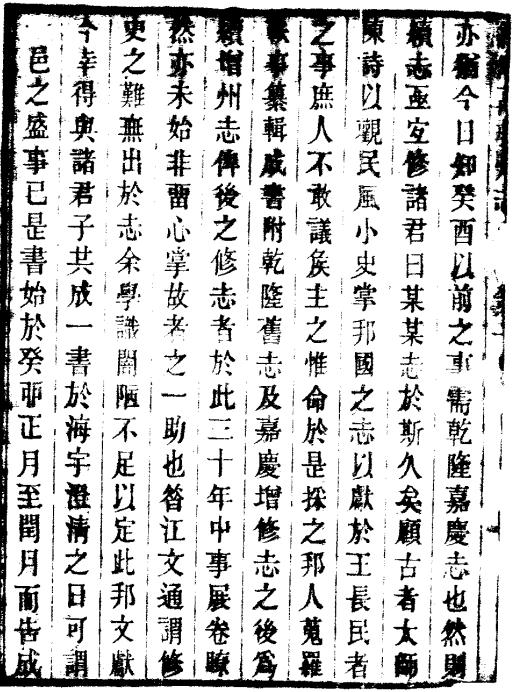 亦猶今日知癸酉以前之事需乾隆嘉慶志也然則
續志亟宜修諸君曰某某志於斯久矣顧古者太師
陳詩以觀民風小史掌邦國之志以獻於王長民者
之事庶人不敢議矦主之惟命於是採之邦人蒐羅
事纂輯成書附乾隆舊志及嘉慶增修志之後爲
續增州志俾後之修志者於此三十年中事展卷瞭
然亦未始非畱心掌故者之一助也昔江文通謂修
史之難無出於志余學識闇陋不足以定此邦文獻
今幸得與諸君子共成一書於海宇澄清之日可謂
邑之盛事已是書始於癸卯正月至閏月而告成